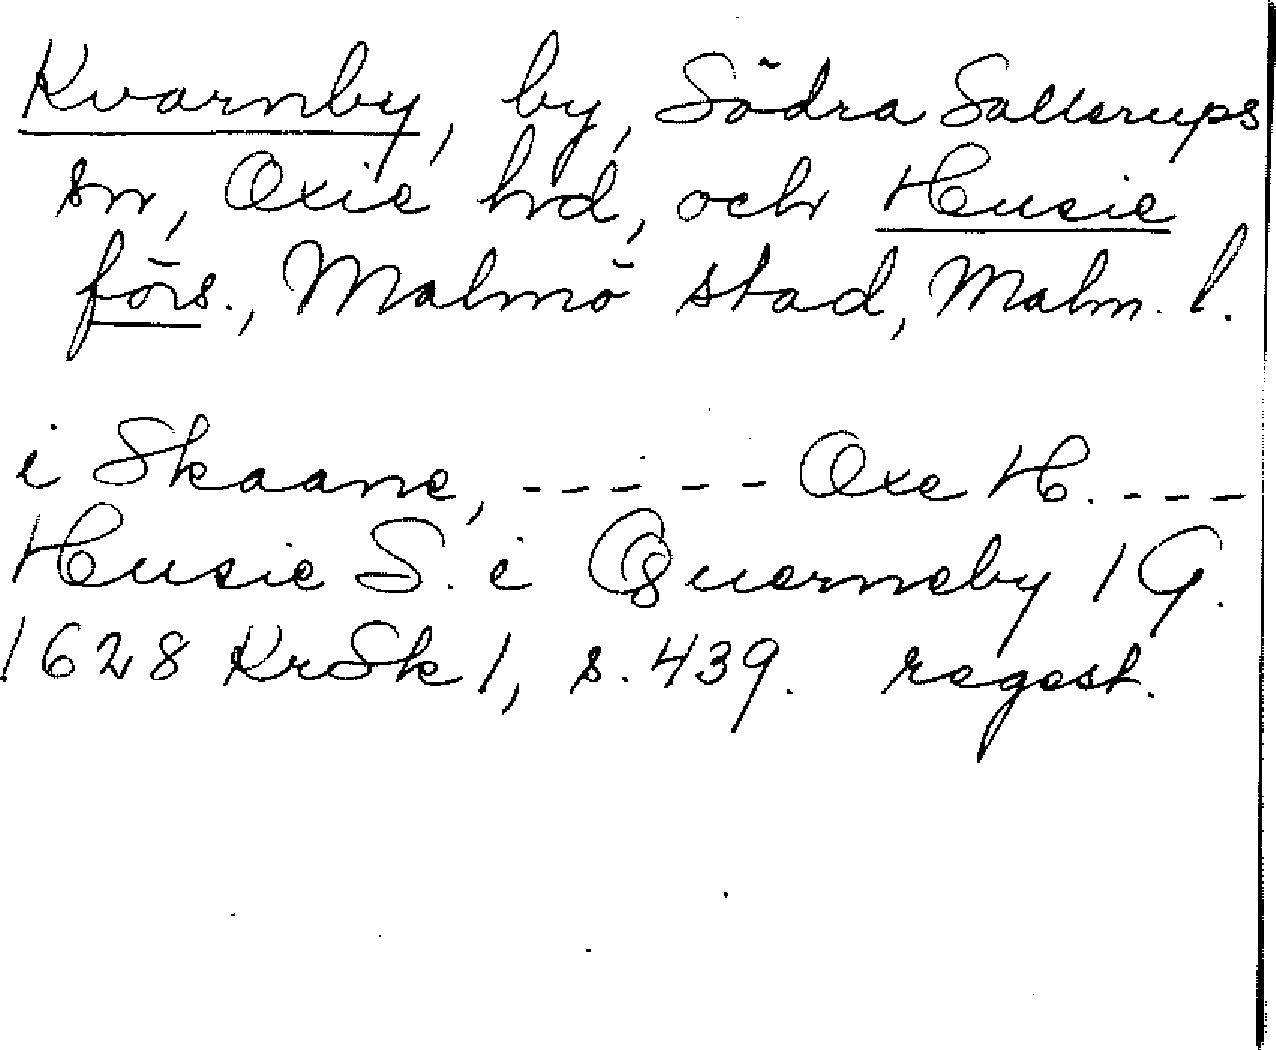 Kvarnby, by, Södra Sallerups
sn, Oxie hd, och Husie
förs., Malmö stad, Malm. l.
i Skaane, ----- Oxe H. ---
Husie S. i Querneby 1 G.
1628 KrSk 1, s. 439. regest.